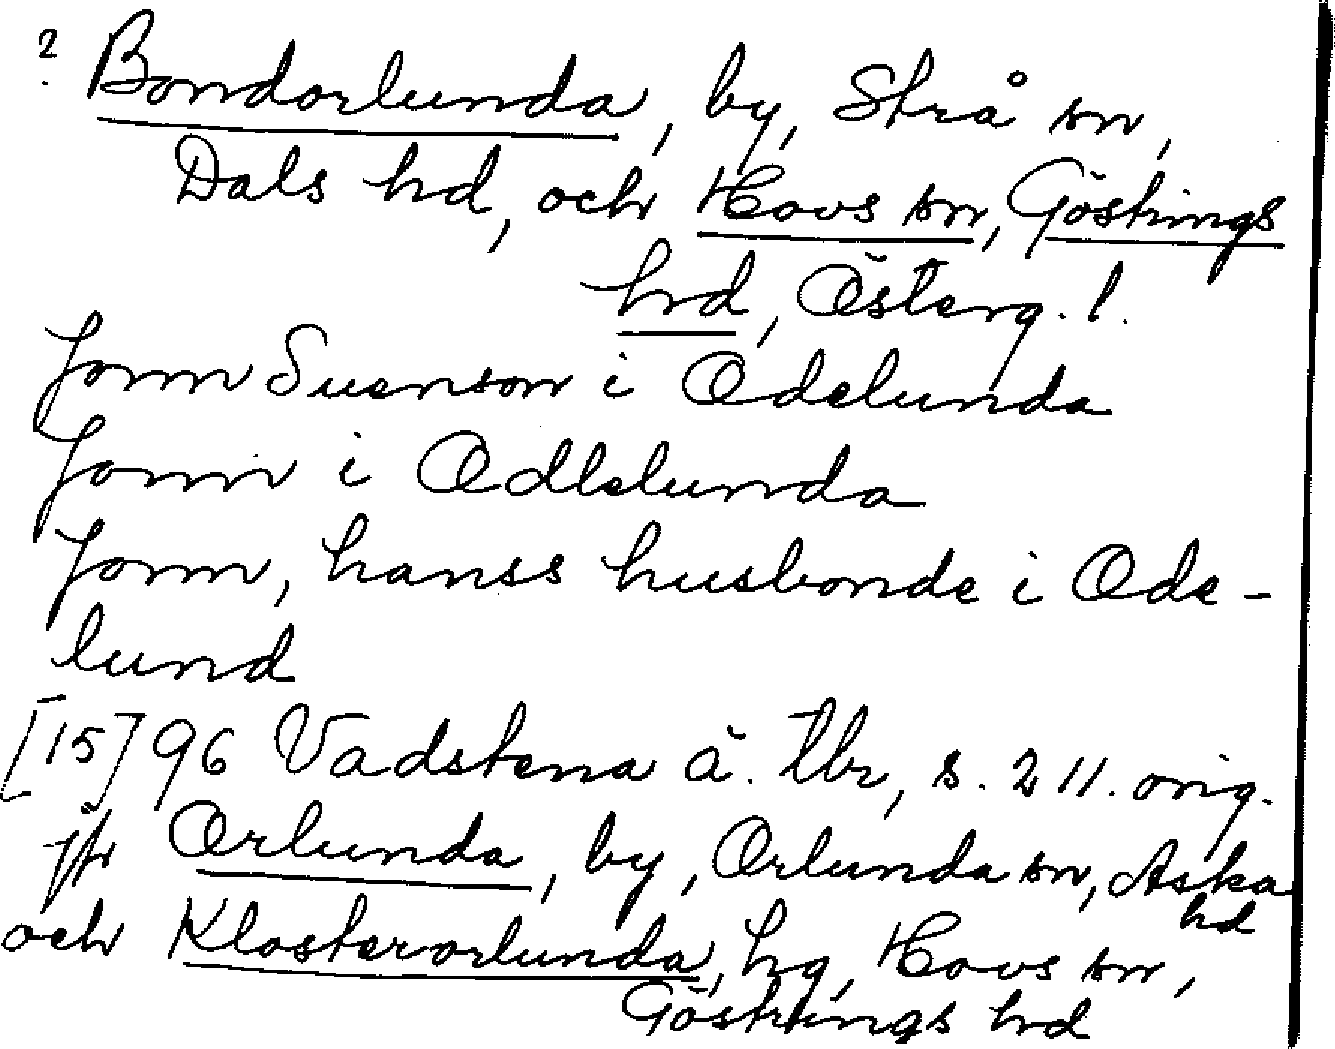 ? Bondorlunda, by, Strå sn,
Dals hd, och Hovs sn, Göstrings
hd, Österg. l.
Jonn Suenson i Odelunda
Jonn i Odlelunda
Jonn, hanss husbonde i Ode-
lund
[15]96 Vadstena ä. tbr, s. 211. orig.
jfr Orlunda, by, Orlunda sn, Aska
hd
och Klosterorlunda, hg, Hovs sn,
Göstrings hd